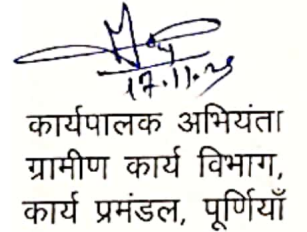 17.11.25
कार्यपालक अभियंता
ग्रामीण कार्य विभाग,
कार्य प्रमंडल, पूर्णियाँ